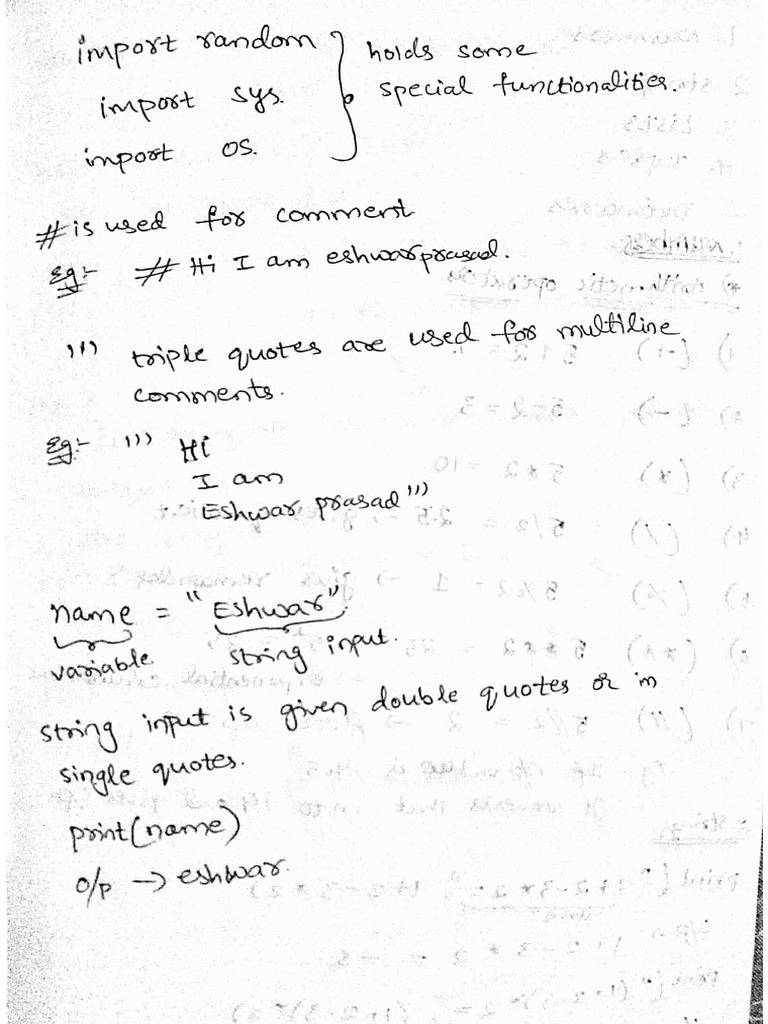 import random
holds some
import sys.
special functionalities.
import os.
# is used for comment
Eg:- # Hi I am eshwarprasad.
''' triple quotes are used for multiline
comments.
Eg:- ''' Hi
I am
Eshwar prasad'''
name = "Eshwar".
variable string input.
string input is given double quotes or in
single quotes.
print(name)
o/p → eshwar.